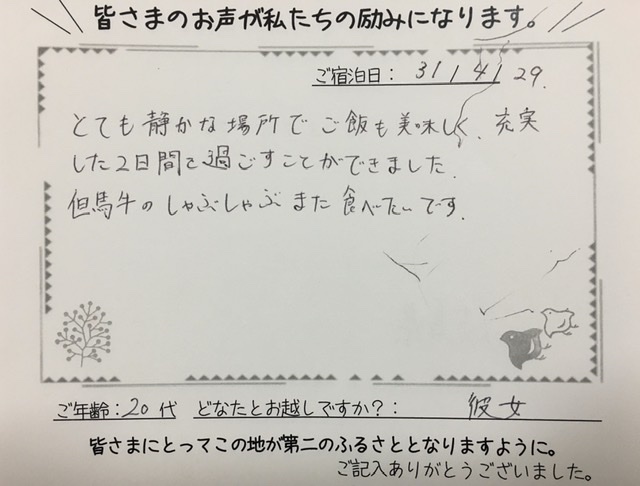 皆さまのお声が私たちの励みになります。
ご宿泊日： 31 / 4 / 29.
とても静かな場所でご飯も美味しく、充実
した2日間を過ごすことができました.
但馬牛のしゃぶしゃぶまた食べたいです.
ご年齢：20代 どなたとお越しですか？： 彼女
皆さまにとってこの地が第二のふるさととなりますように。
ご記入ありがとうございました。